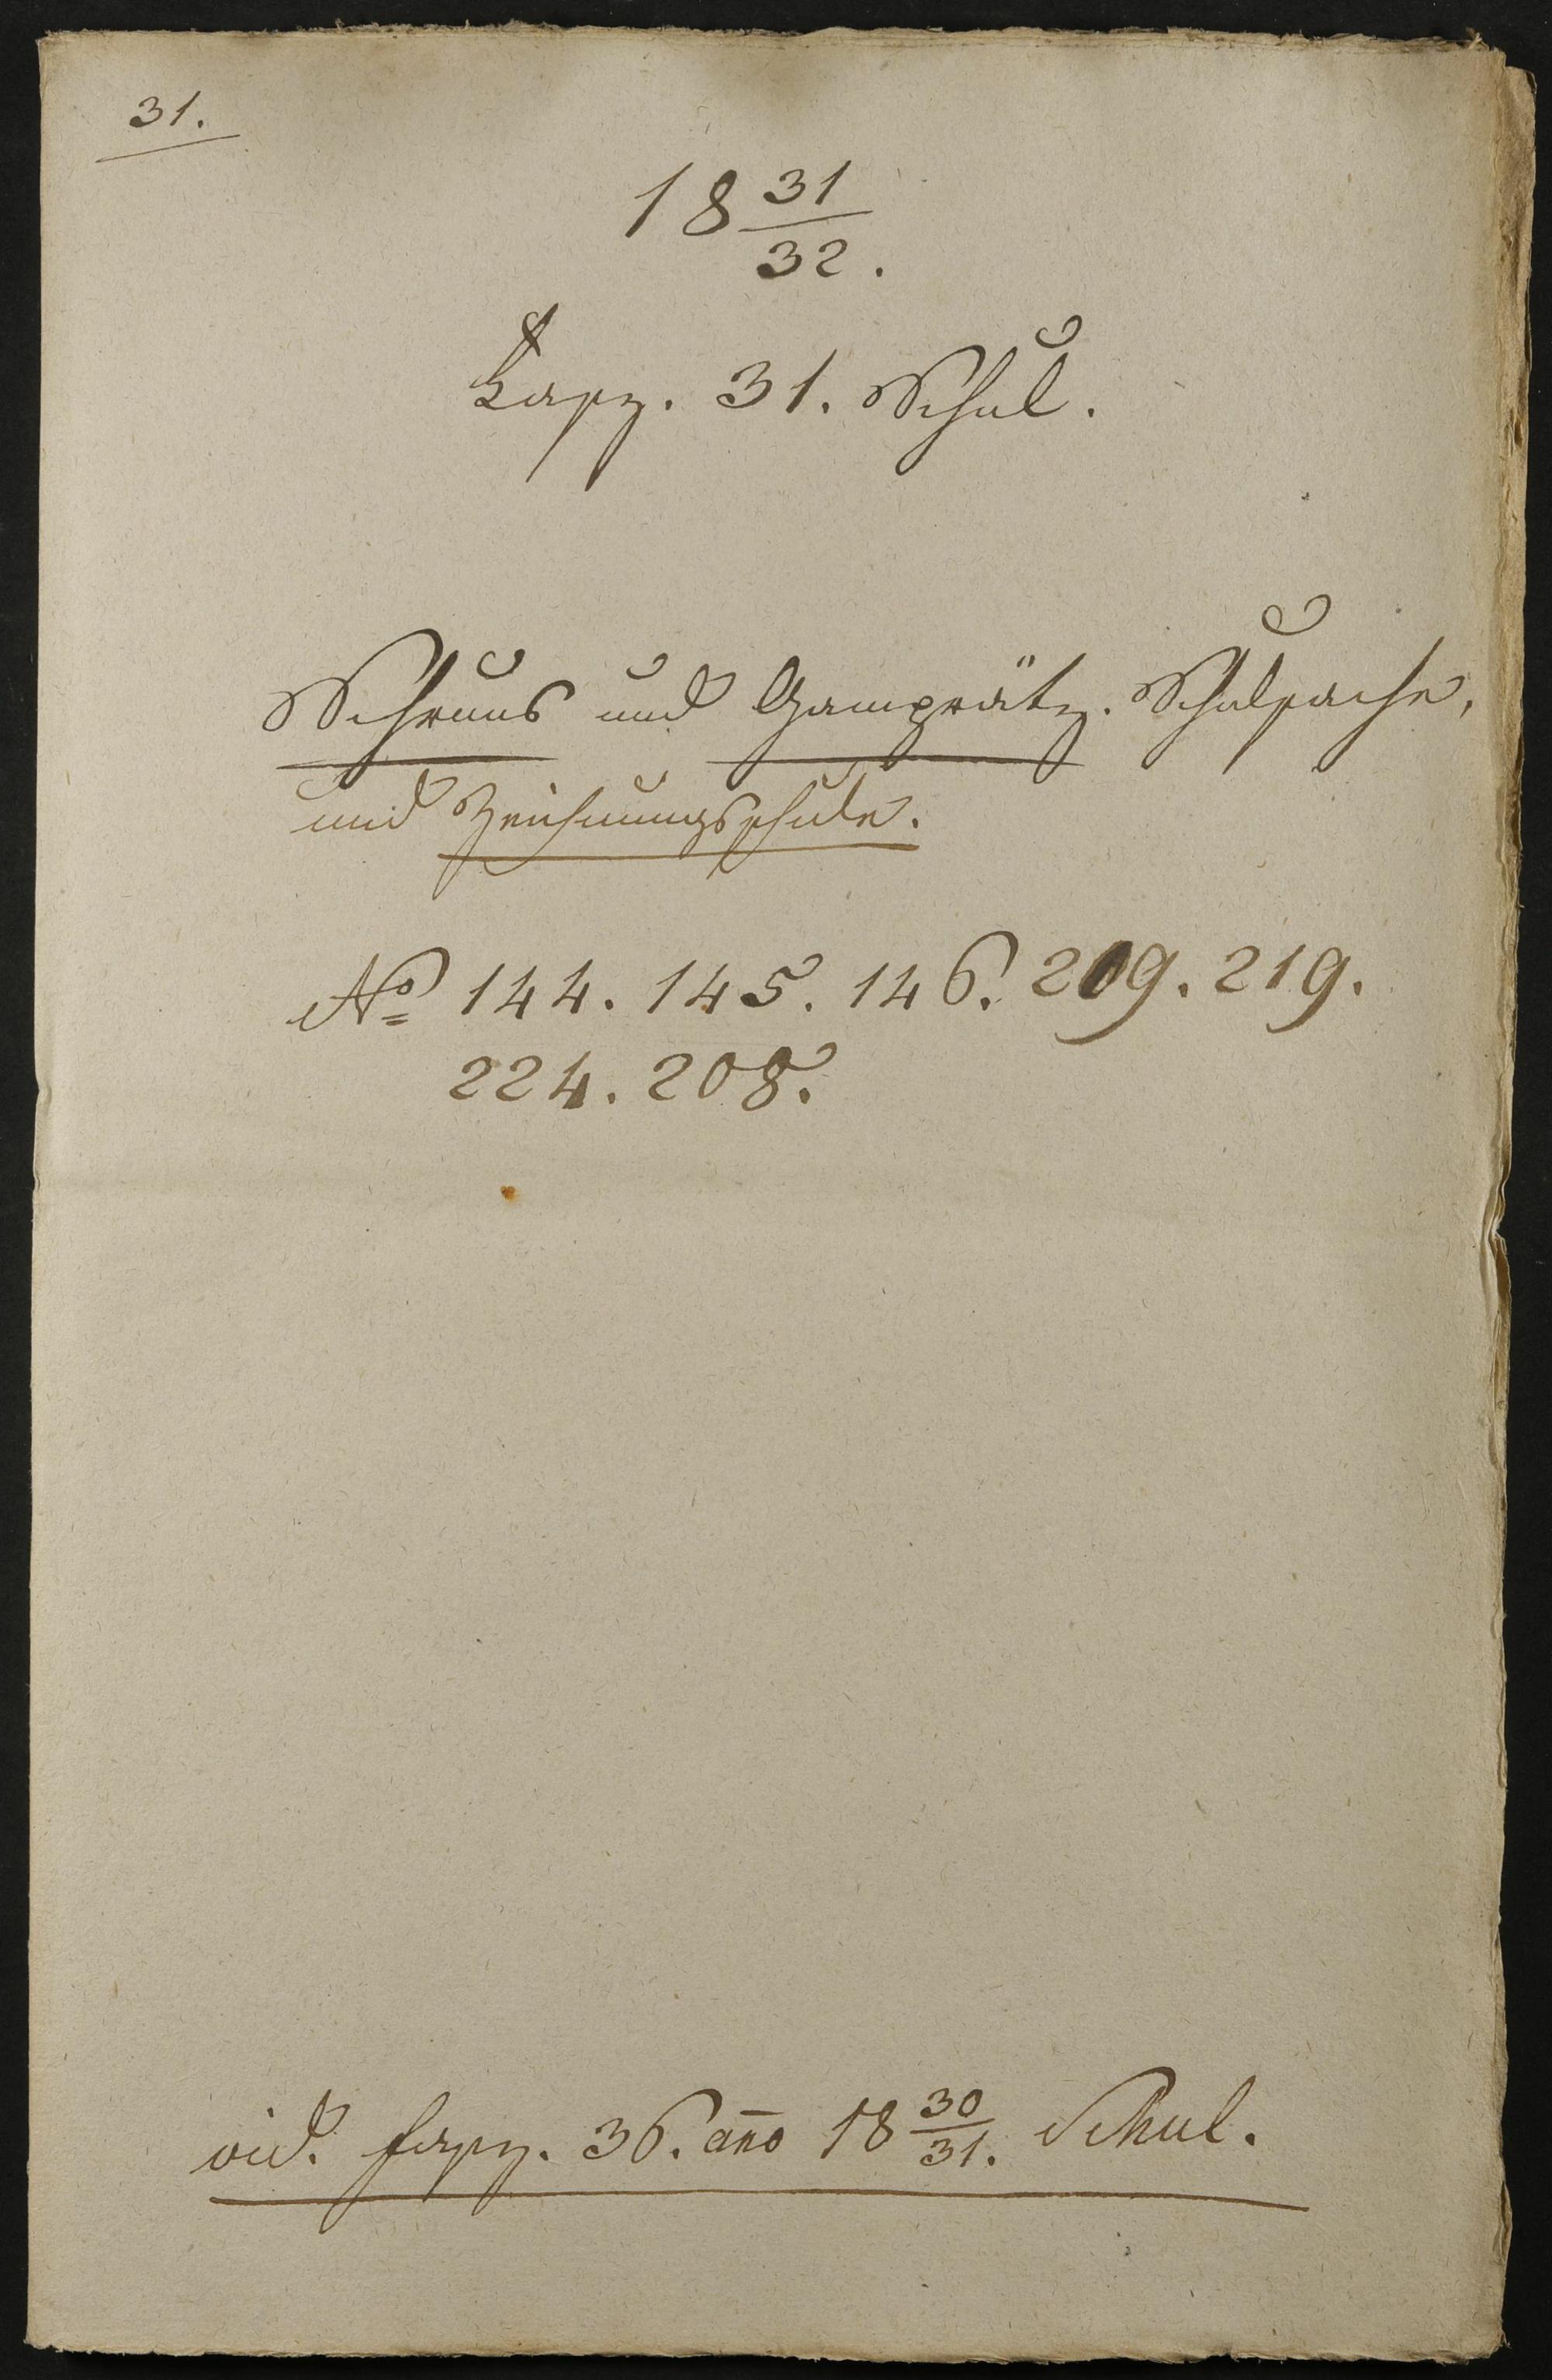 31.
18 31/32.
Fasz. 31. Schul.
Schruns und Gamprätz. Schulsache,
und Zeichnungsschule.
No 144. 145. 146. 209. 219.
224. 208.
vid. fasz. 36. año 18 30/31. Schul.